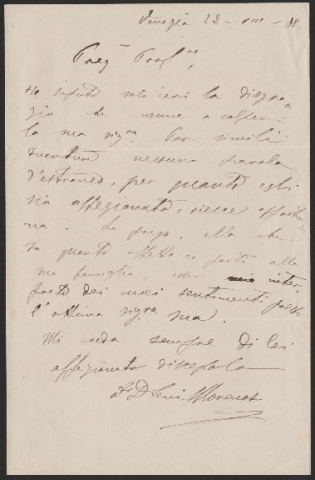 Venezia 23 - VIII - 88.
Preg.mo Prof.re,
Ho saputo solo ieri la disgra-
zia che venne a colpir
la sua sig.ra Per simili
sventure nessuna parola
d'estraneo, per quanto egli
sia affezionato, riesce opportu
na. La prego, ella che
sa quanto affetto io porti alla
sua famiglia,
prete dei miei sentimenti presso
l'ottima sig.ra sua.
Mi creda sempre di lei
affezionato discepolo
D Levi Morenos